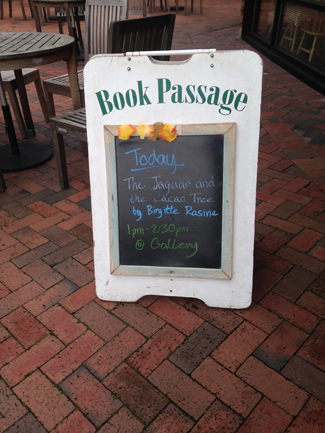 Book Passage
Today
The Jaguar and
the Cacao Tree
by Birgitte Rasine
1pm-2:30pm
@ Gallery